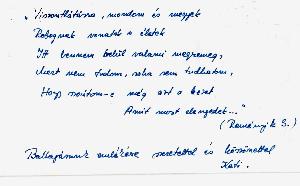 „Viszontlátásra, mondom és megyek
Robognak vonatok és életek
Itt bennem belül valami megremeg,
Mert nem tudom, soha nem tudhatom,
Hogy szorítom-e még azt a kezet
Amit most elengedek..."
(Reményik S.)
Ballagásunk emlékére szeretettel és köszönettel
Kati.